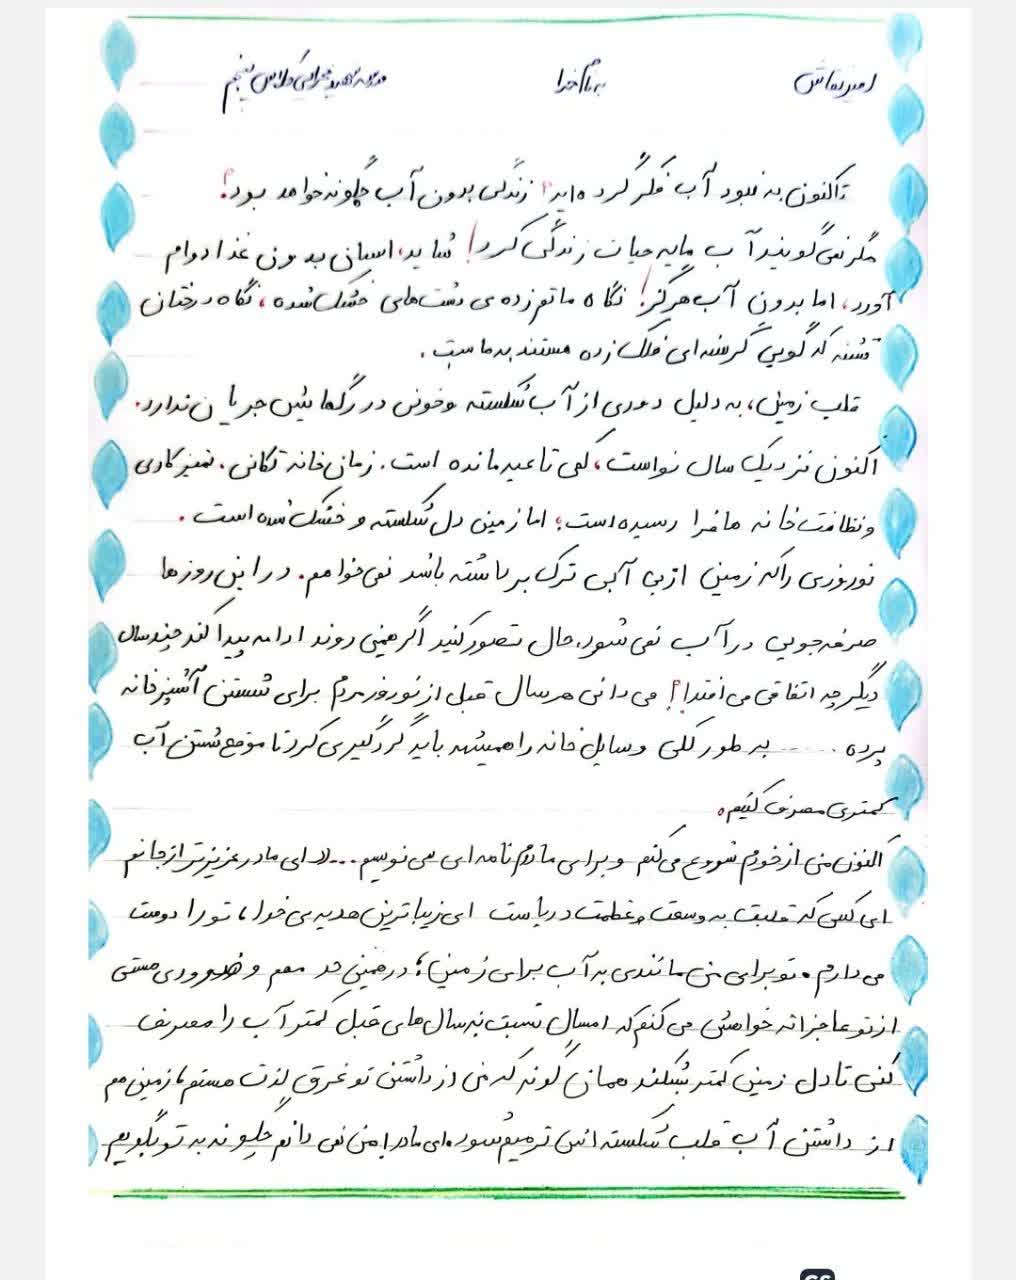 به نام خدا
تاکنون به نبود آب فکر کرده اید؟ زندگی بدون آب چگونه خواهد بود؟
مگر نمی گویند آب مایه حیات زندگی کرد! شاید، انسان بدون غذا دوام
آورد، اما بدون آب هرگز! نگاه ماتم زده ی دشت های خشک شده، نگاه درختان
تشنه که گویی گرسنه ای فلک زده هستند به ماست.
قلب زمین، به دلیل دوری از آب شکسته و خونی در رگ هایش جریان ندارد.
اکنون نزدیک سال نو است، کمی تا عید مانده است. زمان خانه تکانی، تمیز کاری
و نظافت خانه ها فرا رسیده است؛ اما زمین دل شکسته و خشک شده است.
نوروزی را که زمین از بی آبی ترک برداشته باشد نمی خواهم. در این روزها
صرفه جویی در آب نمی شود. حال تصور کنید اگر همین روند ادامه پیدا کند چند سال
دیگر چه اتفاقی می افتد!؟ می دانی هر سال قبل از نوروز مردم برای شستن آشپزخانه
پرده ..... به طور کلی وسایل خانه را همیشه باید گردگیری کرد تا موقع شستن آب
کمتری مصرف کنیم.
اکنون من از خودم شروع می کنم و برای مادرم نامه ای می نویسم... «ای مادر عزیزتر از جانم
ای کسی که قلبت به وسعت و عظمت دریاست ای زیباترین هدیه ی خدا، تو را دوست
می دارم. تو برای من مانندی به آب برای زمین؛ در همین حد مهم و ضروری هستی
از تو عاجزانه خواهش می کنم که امسال نسبت به سال های قبل کمتر آب را مصرف
کنی تا دل زمین کمتر بشکند همان گونه که من از داشتن تو غرق لذت هستم، زمین هم
از داشتن آب قلب شکسته اش ترمیم شود. ای مادر! من نمی دانم چگونه به تو بگویم